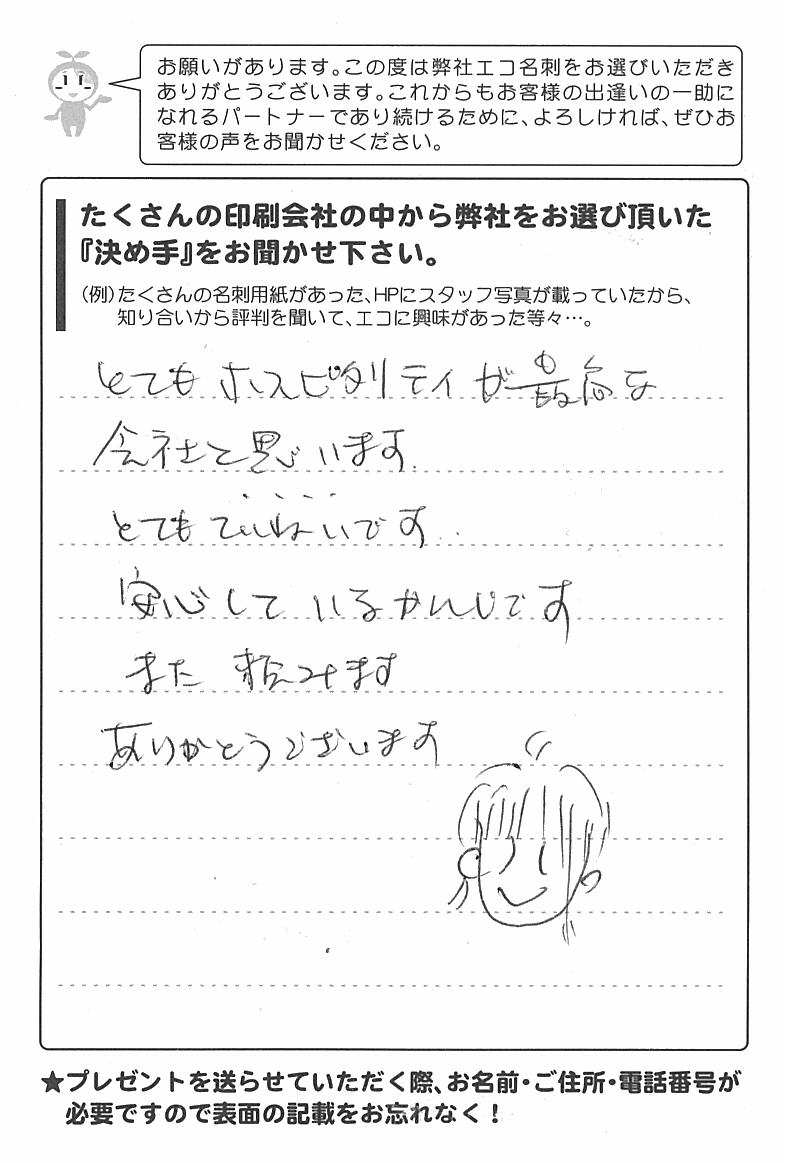 お願いがあります。この度は弊社エコ名刺をお選びいただき
ありがとうございます。これからもお客様の出逢いの一助に
なれるパートナーであり続けるために、よろしければ、ぜひお
客様の声をお聞かせください。
たくさんの印刷会社の中から弊社をお選び頂いた
『決め手』をお聞かせ下さい。
(例)たくさんの名刺用紙があった、HPにスタッフ写真が載っていたから、
知り合いから評判を聞いて、エコに興味があった等々…。
とてもホスピタリティが最高な
会社と思います
とてもていねいです
安心しているかんじです
また 頼みます
ありがとうございます
★プレゼントを送らせていただく際、お名前・ご住所・電話番号が
必要ですので表面の記載をお忘れなく!